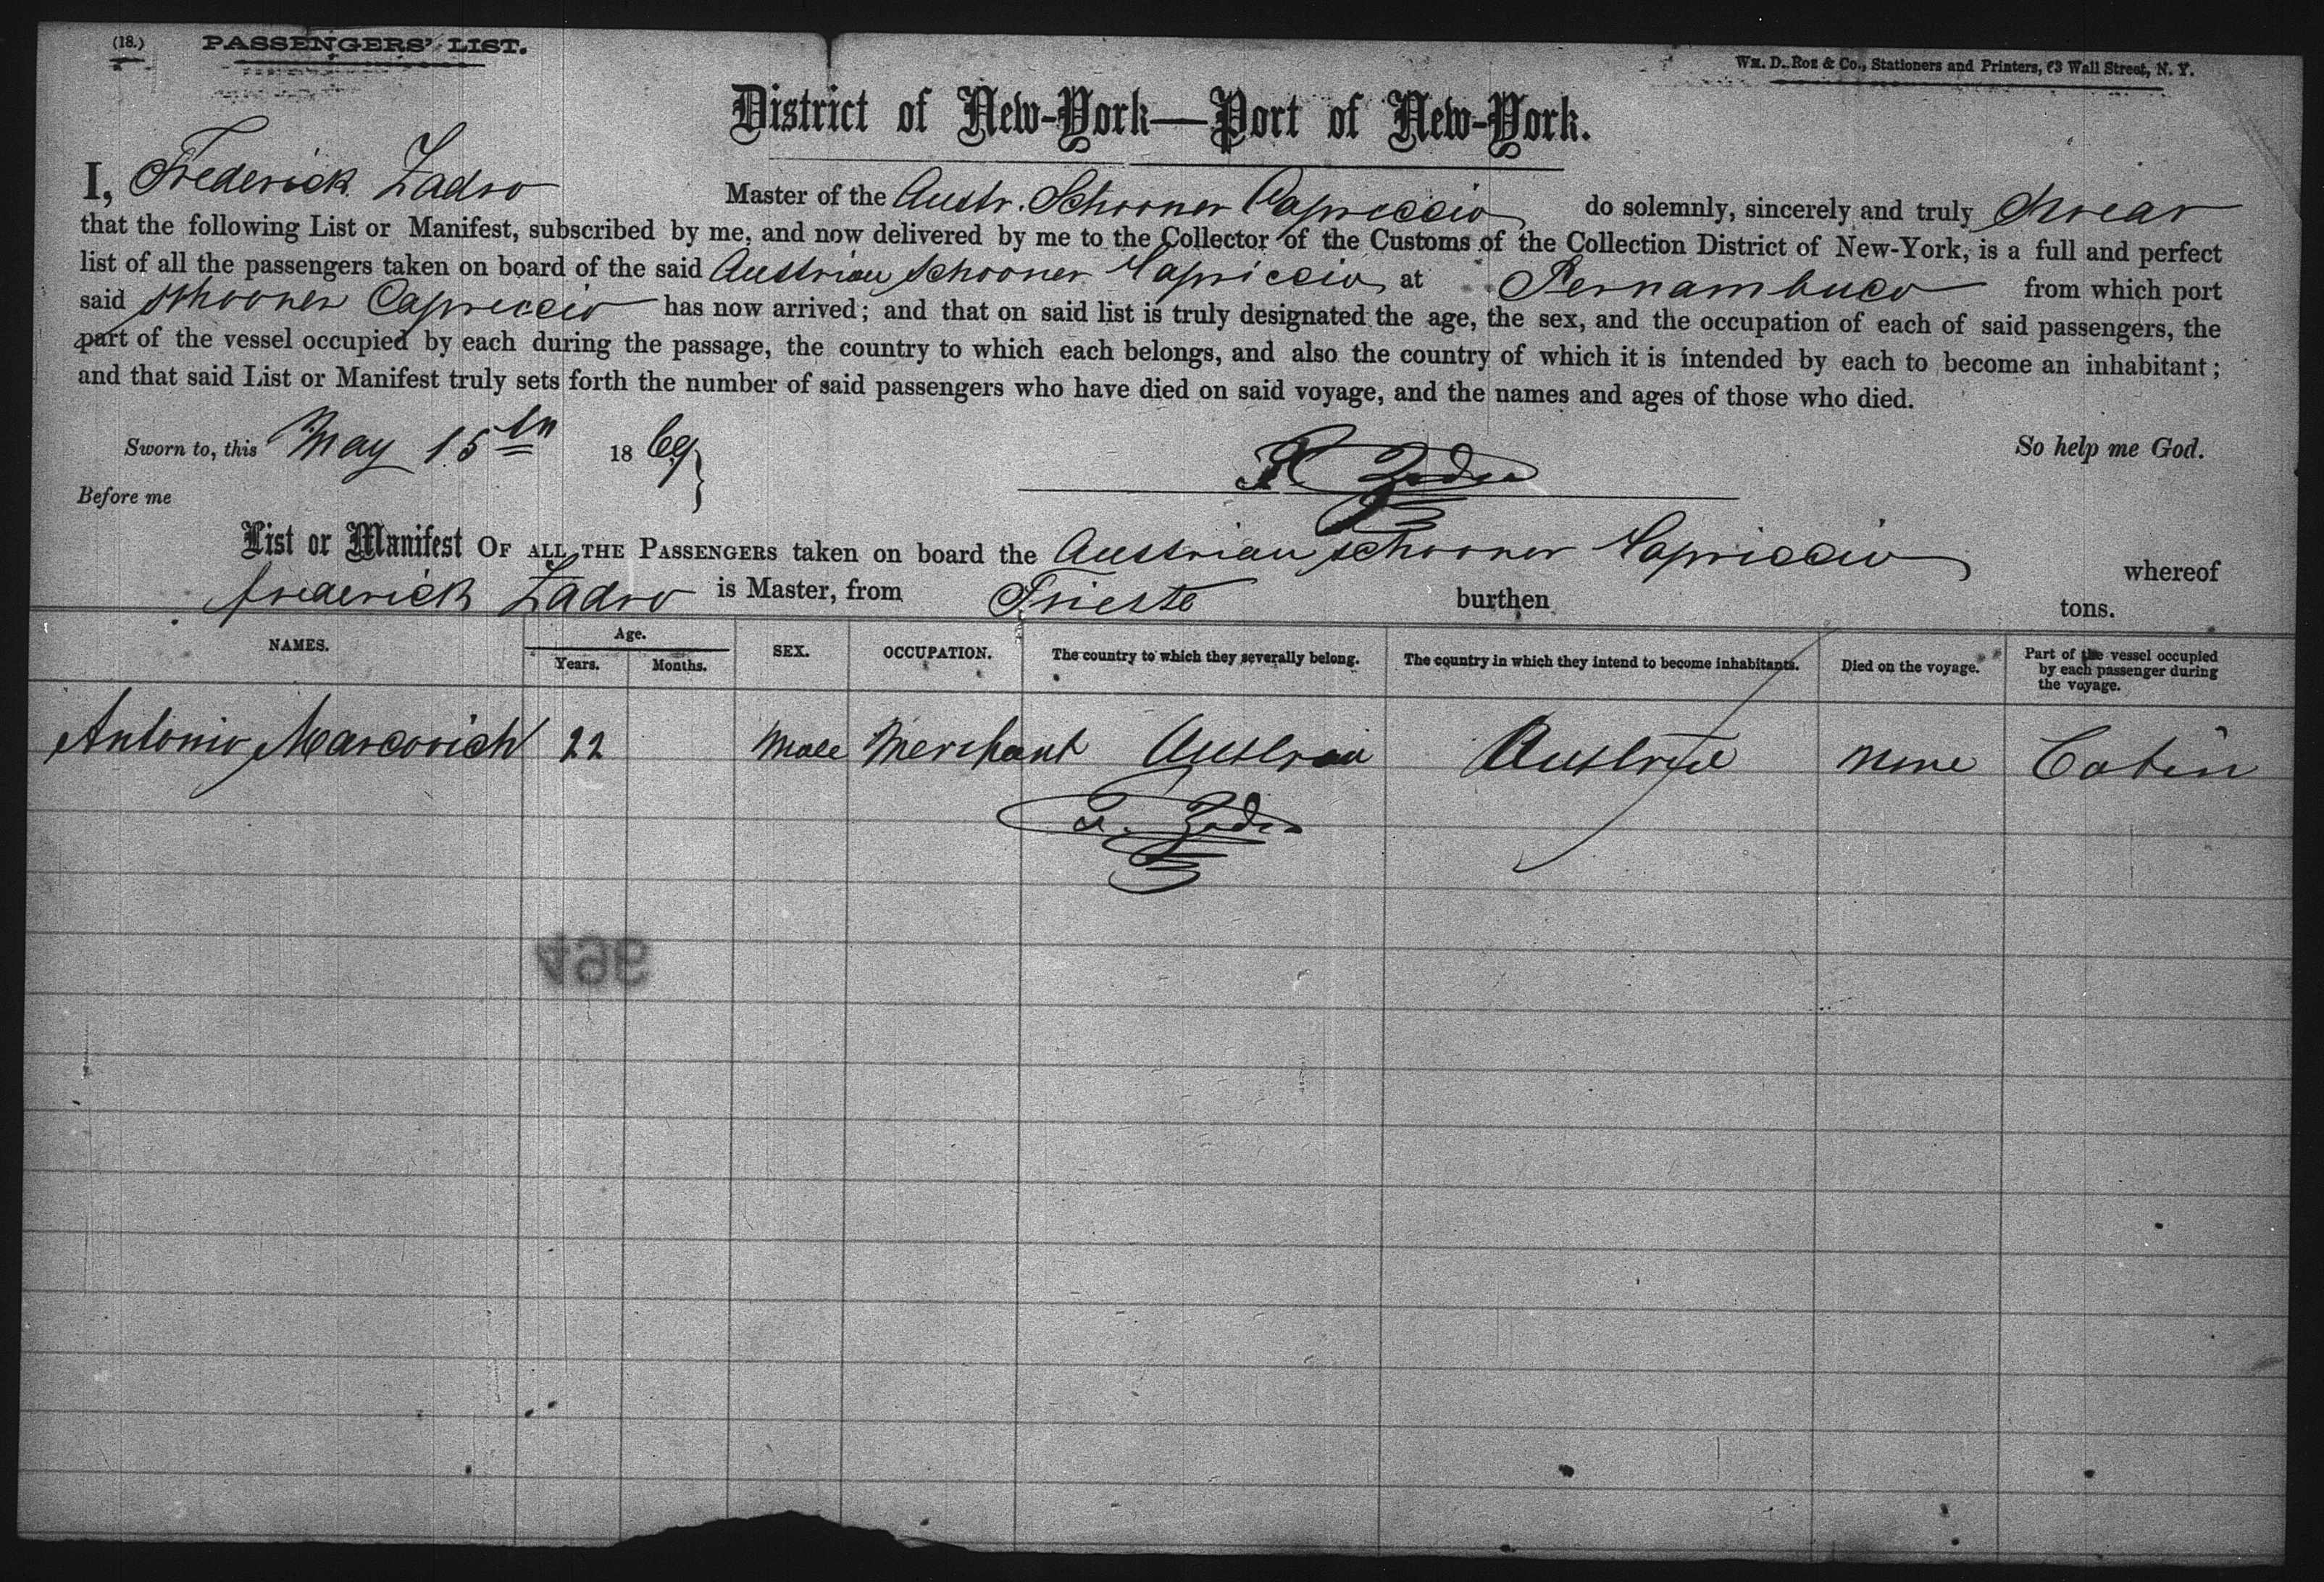 (18.) PASSENGERS' LIST.
Wm. D. Roe & Co., Stationers and Printers, 63 Wall Street, N. Y.
District of New-York—Port of New-York.
I, Frederick Zadro Master of the Austr. Schooner Capriccio do solemnly, sincerely and truly swear
that the following List or Manifest, subscribed by me, and now delivered by me to the Collector of the Customs of the Collection District of New-York, is a full and perfect
list of all the passengers taken on board of the said Austrian schooner Capriccio at Pernambuco from which port
said schooner Capriccio has now arrived; and that on said list is truly designated the age, the sex, and the occupation of each of said passengers, the
part of the vessel occupied by each during the passage, the country to which each belongs, and also the country of which it is intended by each to become an inhabitant;
and that said List or Manifest truly sets forth the number of said passengers who have died on said voyage, and the names and ages of those who died.
Sworn to, this May 15th 1869 } So help me God.
F. Zadro
Before me
List or Manifest OF ALL THE PASSENGERS taken on board the Austrian schooner Capriccio whereof
frederick Zadro is Master, from Trieste burthen tons.
NAMES. Age. Years. Months. SEX. OCCUPATION. The country to which they severally belong. The country in which they intend to become inhabitants. Died on the voyage. Part of the vessel occupied by each passenger during the voyage.
Antonio Marcovich 22 Male Merchant Austria Austria None Cabin
F. Zadro
496